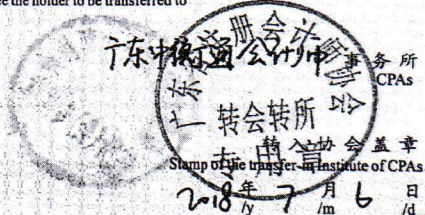 ee the holder to be transferred to
广东中衡通会计师事务所
CPAs
广东省注册会计师协会
转会转所
专用章
转入协会盖章
Stamp of the transfer-in Institute of CPAs
2018年7月6日
/y /m /d